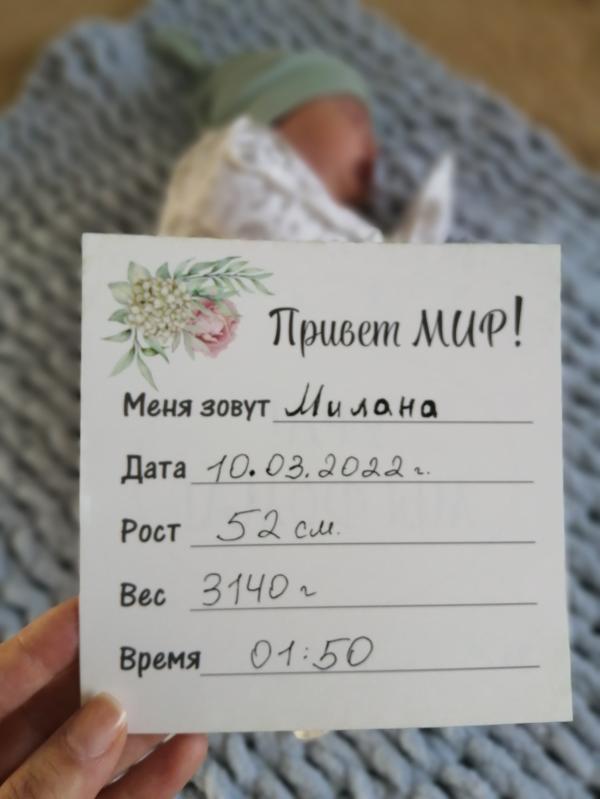 Привет МИР!
Меня зовут Милана
Дата 10.03.2022 г.
Рост 52 см.
Вес 3140 г
Время 01:50